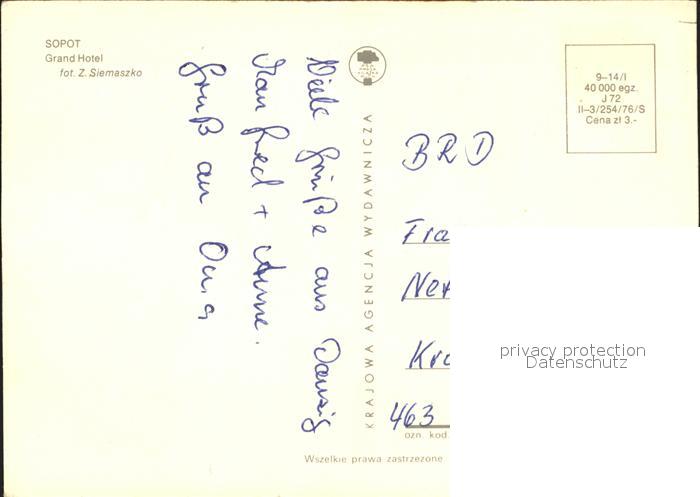 SOPOT
Grand Hotel
fot. Z. Siemaszko
Viele Grüße aus Danzig
Manfred + Anne.
Gruß an Oma
KRAJOWA AGENCJA WYDAWNICZA
9–14/I
40 000 egz.
J 72
II–3/254/76/S
Cena zł 3.-
BRD
Fra
Kro
463
ozn. kod.
Wszelkie prawa zastrzeżone
privacy protection
Datenschutz